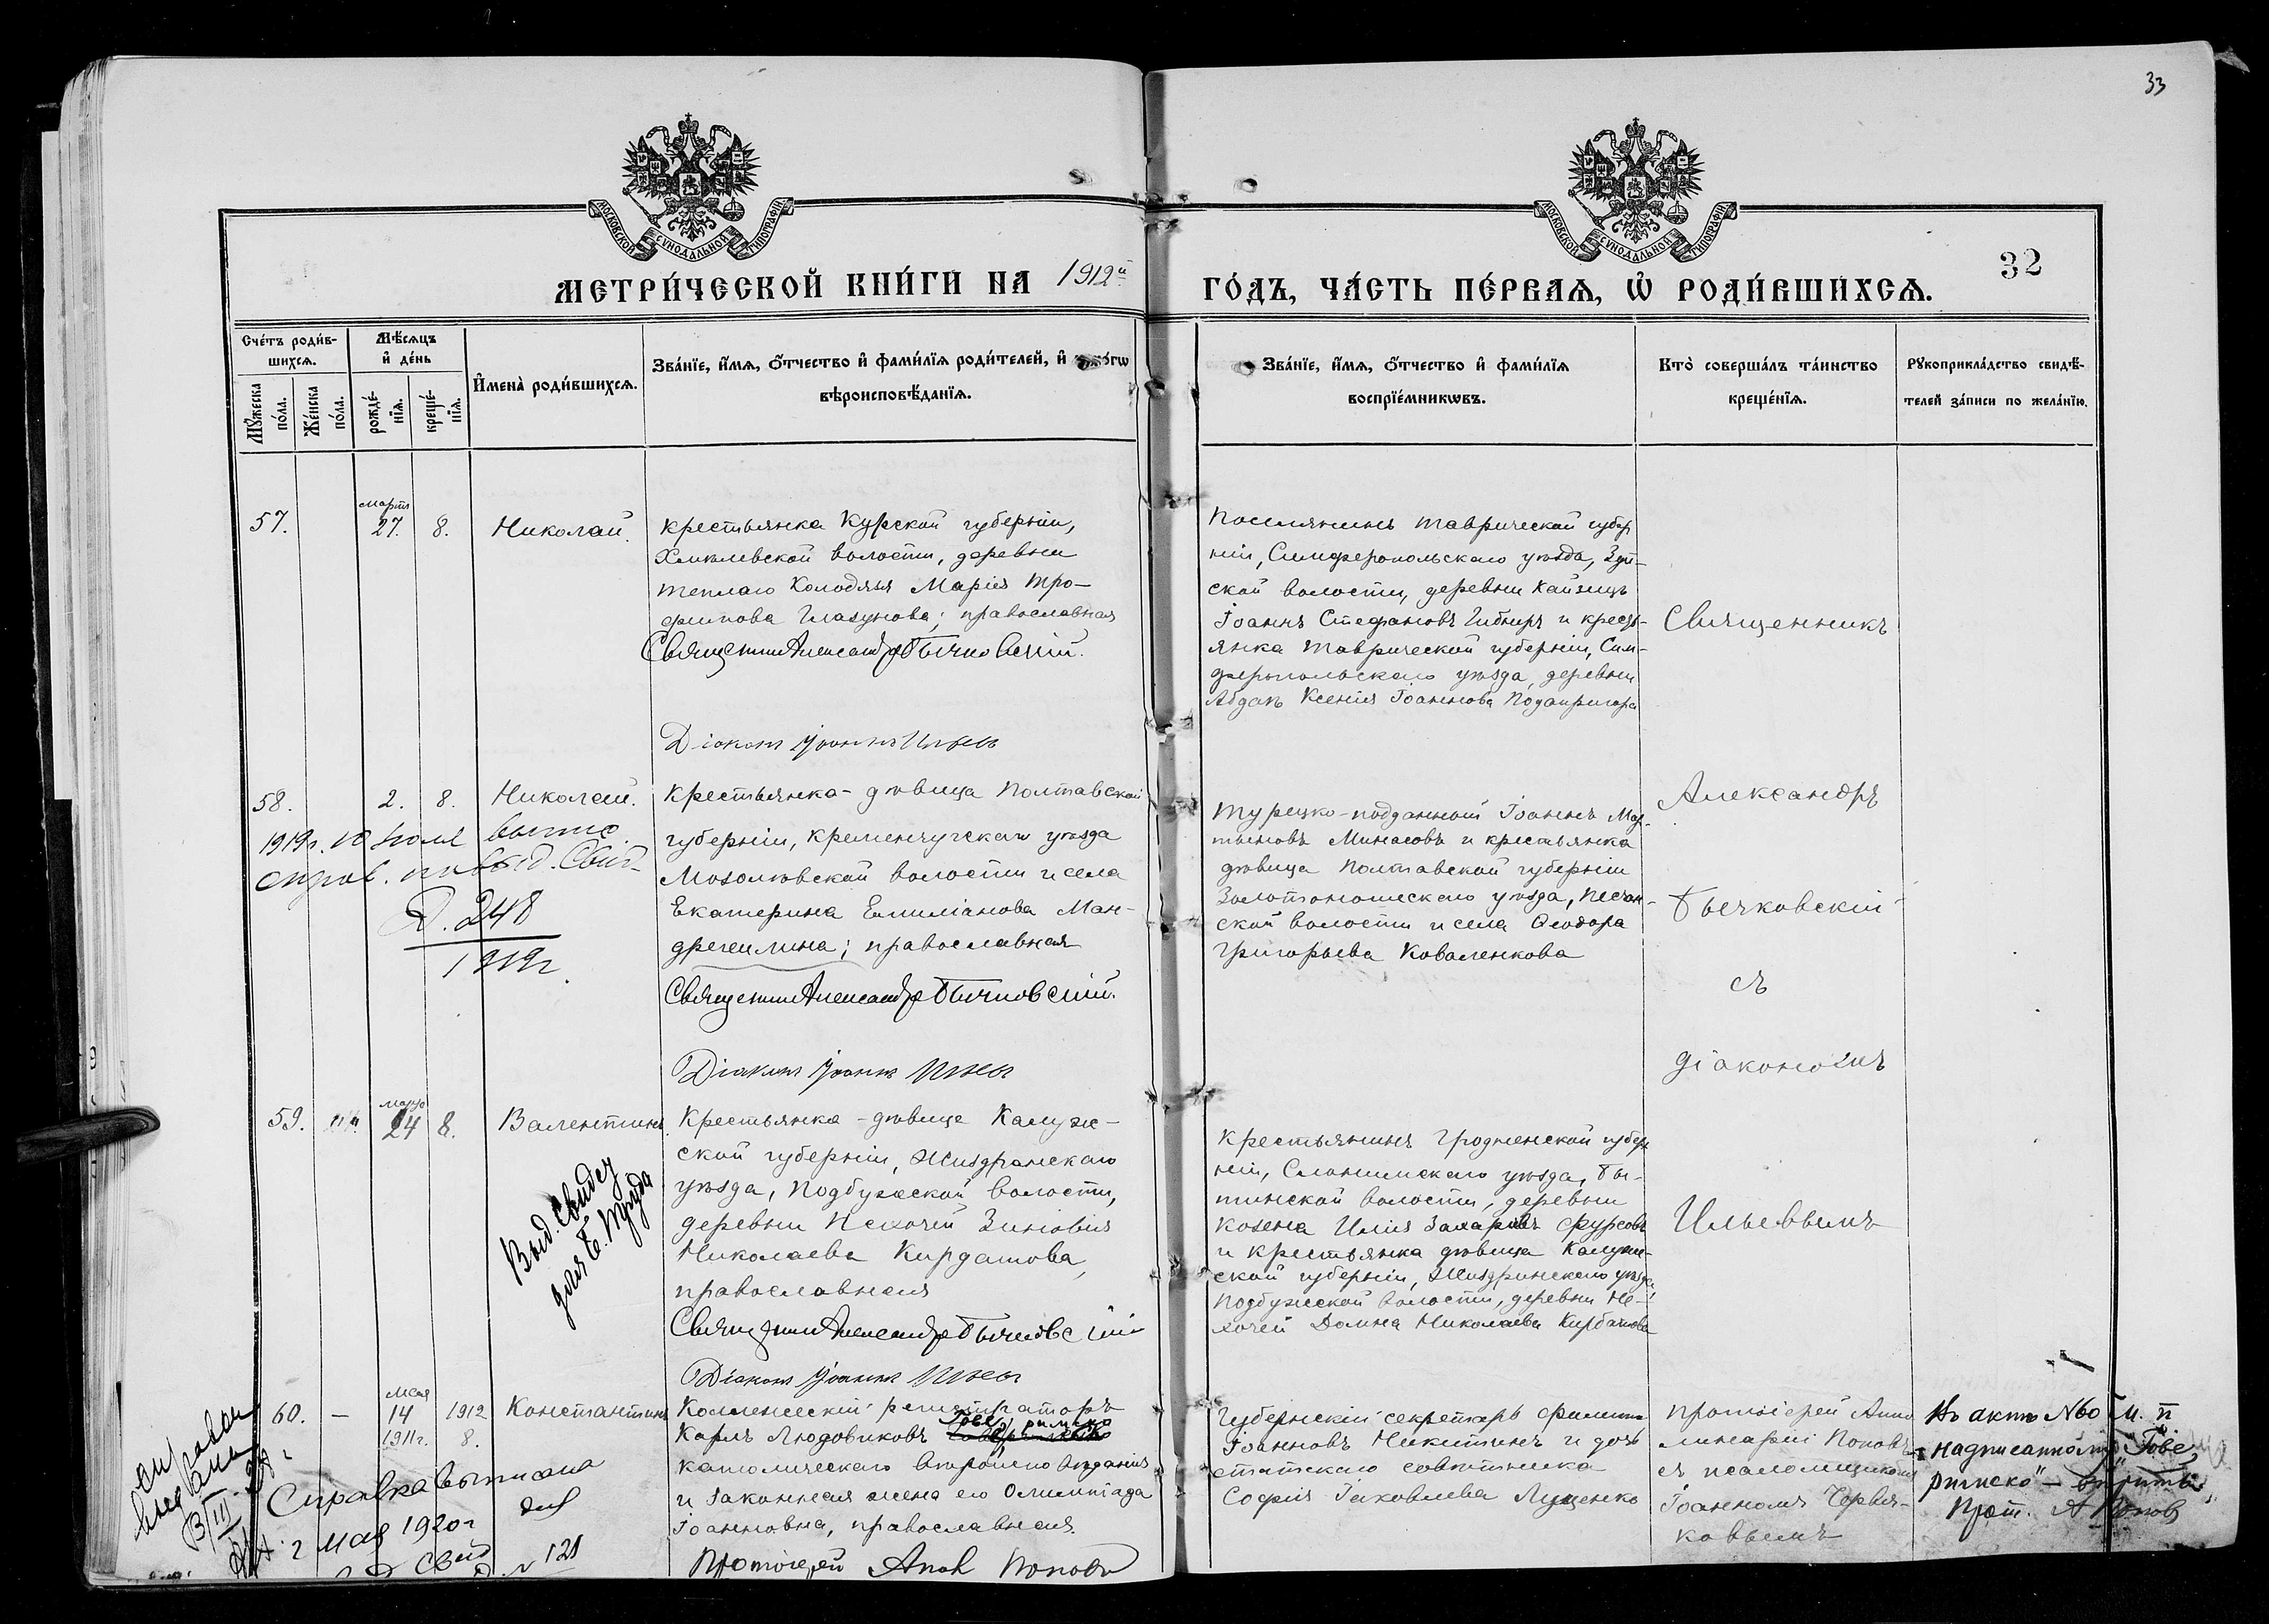 33
МОСКОВСКОЙ СѴНОДАЛЬНОЙ ТИПОГРАФІИ
МОСКОВСКОЙ СѴНОДАЛЬНОЙ ТИПОГРАФІИ
32
МЕТРИ́ЧЕСКОЙ КНИ́ГИ НА 1912й ГО́ДЪ, ЧА́СТЬ ПЕ́РВАѦ, Ѡ҆ РОДИ́ВШИХСѦ.
Счетъ родив-
шихсѧ.
Мꙋжеска пола.
Женска пола.
Мѣсѧцъ
и день
рожде-
нїѧ.
креще-
нїѧ.
Имена родившихсѧ.
Званїе, имѧ, отчество и фамилїѧ родителей, и
вѣроисповѣданїѧ.
Званїе, имѧ, отчество и фамилїѧ
воспрїемникѡвъ.
Кто совершалъ таинство
крещенїѧ.
Рꙋкоприкладство свидѣ-
телей записи по желанїю.
57.
мартъ
27. 8. Николай.
Крестьянка Курской губерніи,
Хмѣлевской волости, деревни
Теплаго Колодязя Марія Тро-
фимова Глазунова; православная
Священник Александр Бычковскій.
Діаконъ Іоаннъ Ильевъ
Поселянинъ Таврической губер
ніи, Симферопольскаго уѣзда, Зуй-
ской волости, деревни
Іоаннъ Стефановъ и кресть-
янка Таврической губерніи, Сим-
феропольскаго уѣзда, деревни
Абдалъ Ксенія Іоаннова Подопригора
Священникъ
Александръ
Бычковскій
съ
діакономъ
Ильевымъ
58. 2. 8. Николай.
1919г. 10 Іюля выписи
справ.
Д. 248
1919г.
Крестьянка-дѣвица Полтавской
губерніи, Кременчугскаго уѣзда
волости и села
Екатерина Емиліанова Ман-
; православная
Священник Александр Бычковскій.
Діаконъ Іоаннъ Ильевъ
Турецко-подданный Іоаннъ Мар-
тыновъ Минасовъ и крестьянка
дѣвица Полтавской губерніи
Золотоношскаго уѣзда, Песчан-
ской волости и села Ѳеодора
Григорьева Коваленкова
59. марта 24 8. Валентинъ.
Выд. Свидет
для Б. Труда
Крестьянка-дѣвица Калуж-
ской губерніи, Жиздринскаго
уѣзда, Подбужской волости,
деревни Нехочей Зиновія
Николаева Кирдатова,
православная
Священник Александр Бычковскій
Діаконъ Іоаннъ Ильевъ
Крестьянинъ Гродненской губер
ніи, Слонимскаго уѣзда, Бы-
тинской волости, деревни
Илія Захаровъ Фурсовъ
и крестьянка дѣвица Калуж-
ской губерніи, Жиздринскаго уѣзда
Подбужской волости, деревни Не-
хочей Домна Николаева
60. — мая 14 1911г. 1912 8. Константинъ
справка
выдана
Справка выписана
2 мая 1920г
№ 121
Коллежскій регистраторъ
Карлъ Людовиковъ Гове, римско
католическаго вѣроисповѣданія
и законная жена его Олимпіада
Іоанновна, православная.
Протоіерей Апол Поповъ
Губернскій секретарь Филиппъ
Іоанновъ Никитинъ и дочь
статскаго совѣтника
Софія Іаковлева Луценко
Протоіерей Аппо
линарій Поповъ
съ псаломщикомъ
Іоанномъ Червя-
ковымъ
Въ актѣ №60 м. п
надписанному "Гове,
римско" – вѣрить.
Прот. А Поповъ